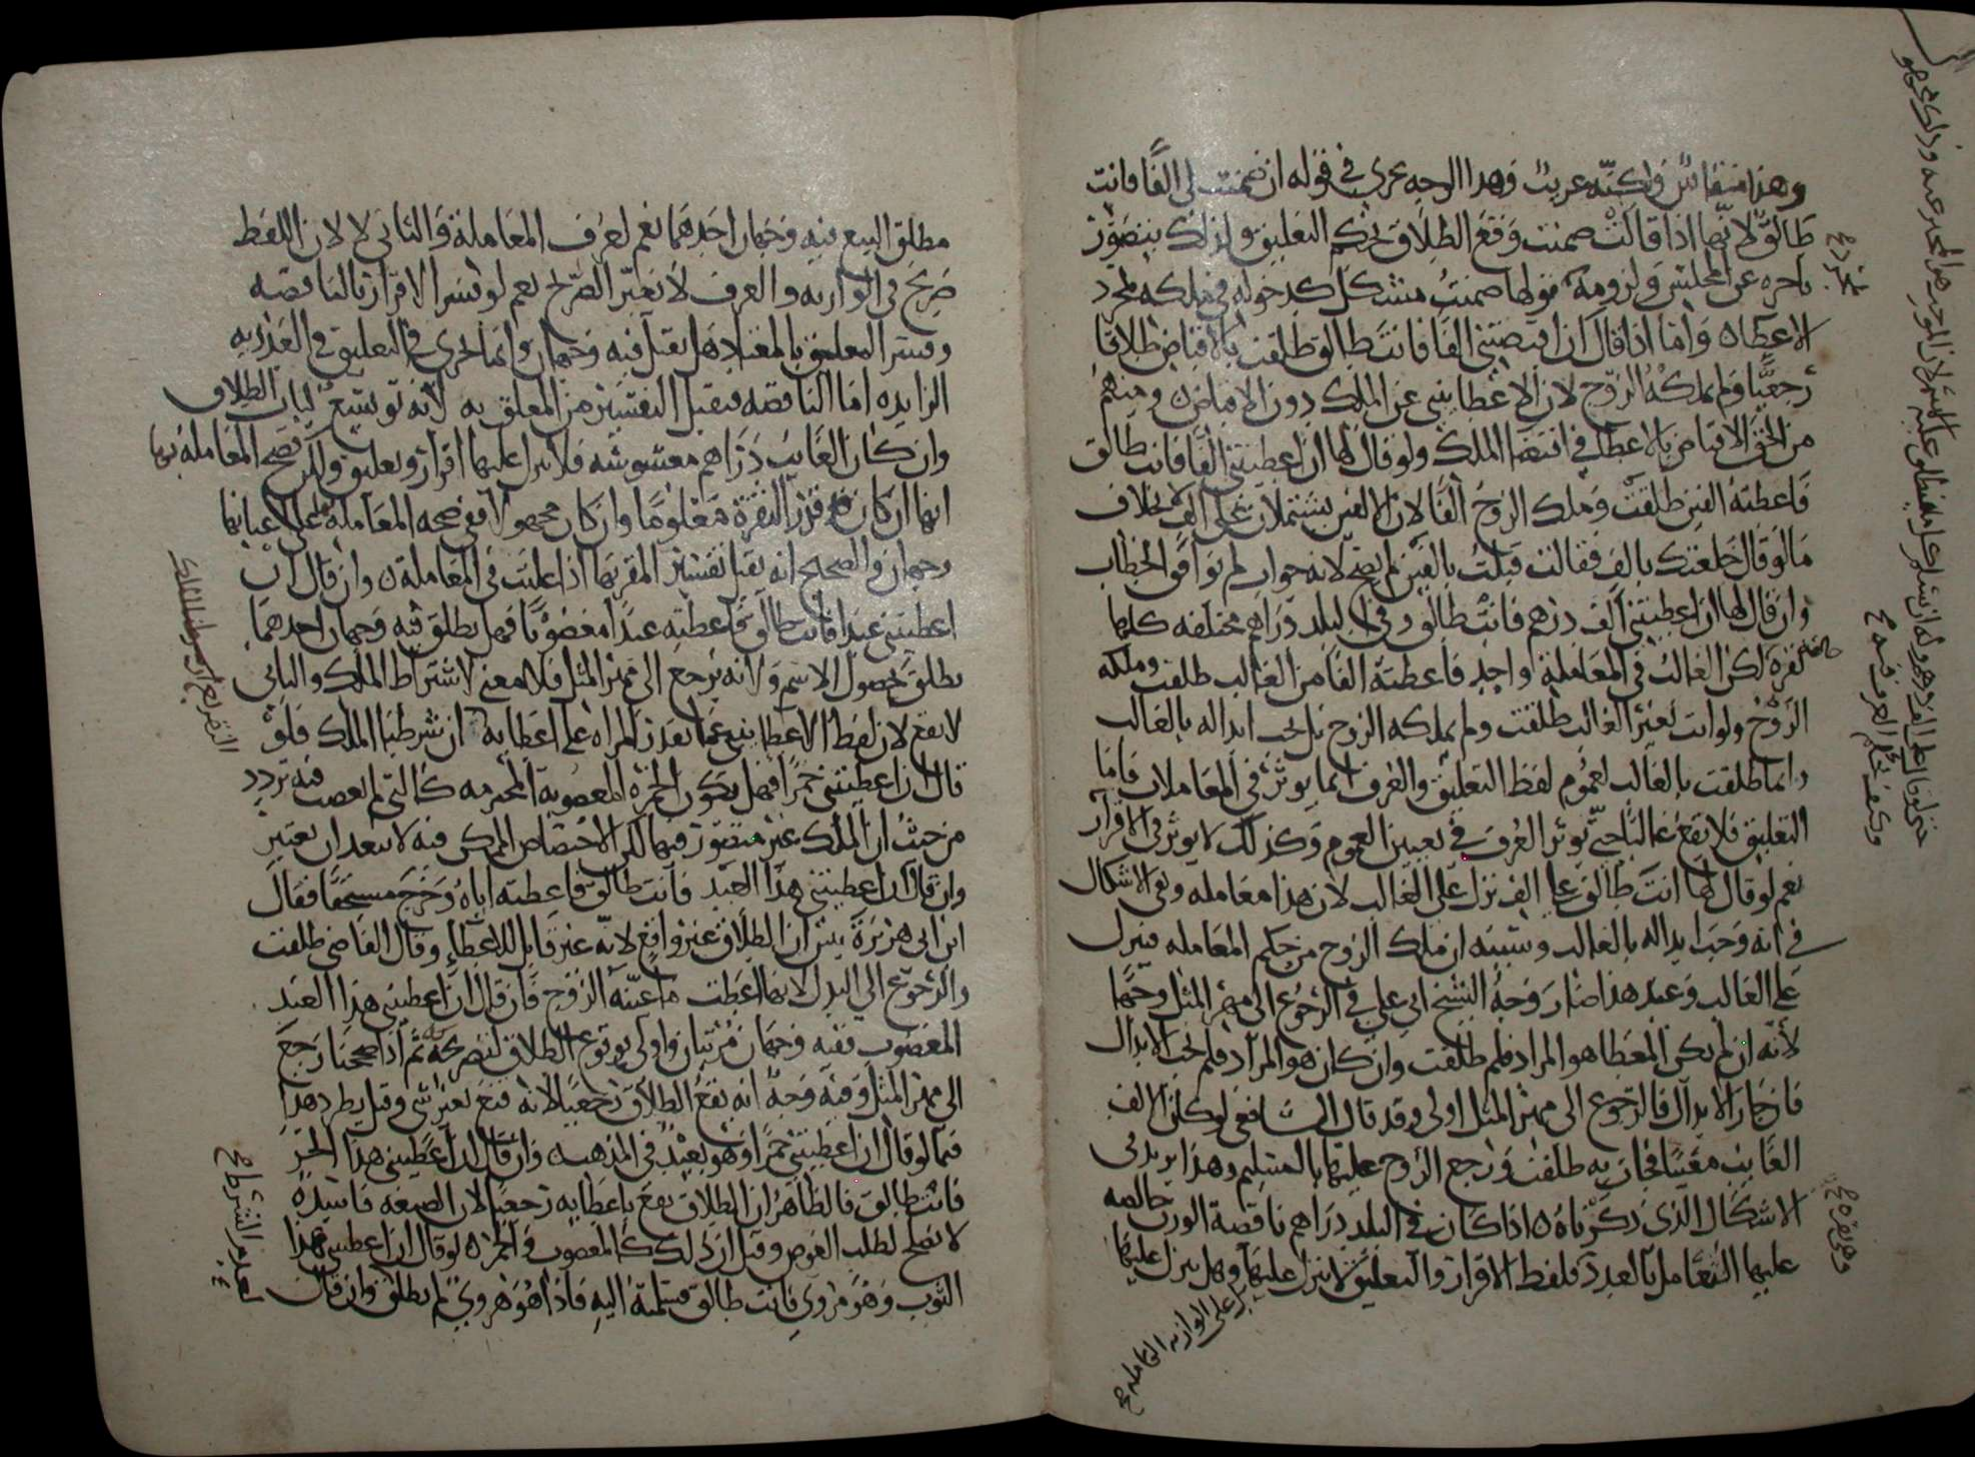 وهذا منقاس ولكنه غريب وهذا الوجه يجري في قوله ان ضمنت لي الفا فانت
طالق لانها اذا قالت ضمنت وقع الطلاق بحكم التعليق ولذلك يتصور
تاخره عن المجلس ولزومه بقولها ضمنت مشكل كدخوله في ملكه بمجرد
الاعطاء واما اذا قال ان اقبضتني الفا فانت طالق طلقت بالاقباض طلاقا
رجعيا ولم يملكه الزوج لان الاعطا ينبي عن الملك دون الاقباض ومنهم
من الحق الاقباض بالاعطا في اقتضا الملك ولو قال لها ان اعطيتني الفا فانت طالق
فاعطته الفين طلقت وملك الزوج الفا لان الالفين يشتملان على الف بخلاف
ما لو قال خلعتك بالف فقالت قبلت بالفين لم يصح لانه جواب لم يوافق الخطاب
وان قال لها ان اعطيتني الف درهم فانت طالق وفي البلد دراهم مختلفه كلها
نقره لكن الغالب في المعاملة واحد فاعطته الفا من الغالب طلقت وملكه
الزوج ولو اتت بغير الغالب طلقت ولم يملكه الزوج بل يجب ابداله بالغالب
وانما طلقت بالغالب لعموم لفظ التعليق والعرف انما يوثر في المعاملات فاما
التعليق فلا يقع غالبا حتى يوثر العرف في تعيين العموم وكذلك لا يوثر في الاقرار
نعم لو قال لها انت طالق على الف نزل على الغالب لان هذا معامله وبقي الاشكال
في انه وجب ابداله بالغالب وسببه ان ملك الزوج من حكم المعامله فينزل
على الغالب وعند هذا صار وجه الشيخ ابي علي في الرجوع الى مهر المثل وجها
لانه ان لم يكن المعطا هو المراد فلم طلقت وان كان هو المراد فلم يجب الابدال
فان جاز الابدال فالرجوع الى مهر المثل اولى وقد قال الشافعي لو كان الالف
الغالب معيبا فجات به طلقت ورجع الزوج عليها بالسليم وهذا يزيد في
الاشكال الذي ذكرناه اذا كان في البلد دراهم ناقصة الوزن خالصه
عليها التعامل بالعدد فلفظ الاقرار والتعليق لا ينزل عليها وهل ينزل عليها
مطلق البيع فيه وجهان احدهما نعم لعرف المعاملة والثاني لا لان اللفظ
صريح في الوازنه والعرف لا يغير الصريح نعم لو فسر الاقرار بالناقصه
وفسر المعلق بالمعتاد هل يقبل فيه وجهان وانما يجري في التعليق في العدديه
الزايده اما الناقصه فيقبل التفسير من المعلق به لانه توسيع لباب الطلاق
وان كان الغالب دراهم مغشوشه فلا ينزل عليها اقرار وتعليق ولكن تصح المعامله بها
انها ان كان قدر النقرة معلوما وان كان مجهولا ففي صحه المعامله على اعيانها
وجهان والصحيح انه يقبل تفسير المقر بها اذا غلبت في المعاملة وان قال ان
اعطيتني عبدا فانت طالق فاعطته عبدا مغصوبا فهل يطلق فيه وجهان احدهما
يطلق لحصول الاسم ولانه يرجع الى مهر المثل فلا معنى لاشتراط الملك والثاني
لا يقع لان لفظ الاعطا ينبي عما تقدر المراه على اعطايه ان شرطنا الملك فلو
قال ان اعطيتني خمرا فهل تكون الخمره المغصوبه المحترمه كالتي لم تغصب فيه تردد
من حيث ان الملك غير متصور فيها لكن الاختصاص الممكن فيه لا يبعد ان يعتبر
وان قال ان اعطيتني هذا العبد فانت طالق فاعطته اياه وخرج مستحقا فقال
ابن ابي هريرة يتبين ان الطلاق غير واقع لانه غير قابل للاعطاء وقال القاضي طلقت
والرجوع الى البدل لانها اعطت ما عينه الزوج فان قال ان اعطيتني هذا العبد
المغصوب ففيه وجهان مرتبان واولى بوقوع الطلاق لتصريحه ثم اذا صححنا رجع
الى مهر المثل وفيه وجه انه يقع الطلاق رجعيا لانه قنع بغير شي وقيل يطرد هذا
فيما لو قال ان اعطيتني خمرا وهو بعيد في المذهب وان قال ان اعطيتني هذا الحر
فانت طالق فالظاهر ان الطلاق يقع باعطايه رجعيا لان الصيغه فاسده
لا تصلح لطلب العوض وقيل ان ذلك كالمغصوب والخمر لو قال ان اعطيتني هذا
الثوب وهو مروي فانت طالق فسلمته اليه فاذا هو هروي لم يطلق وان قالت